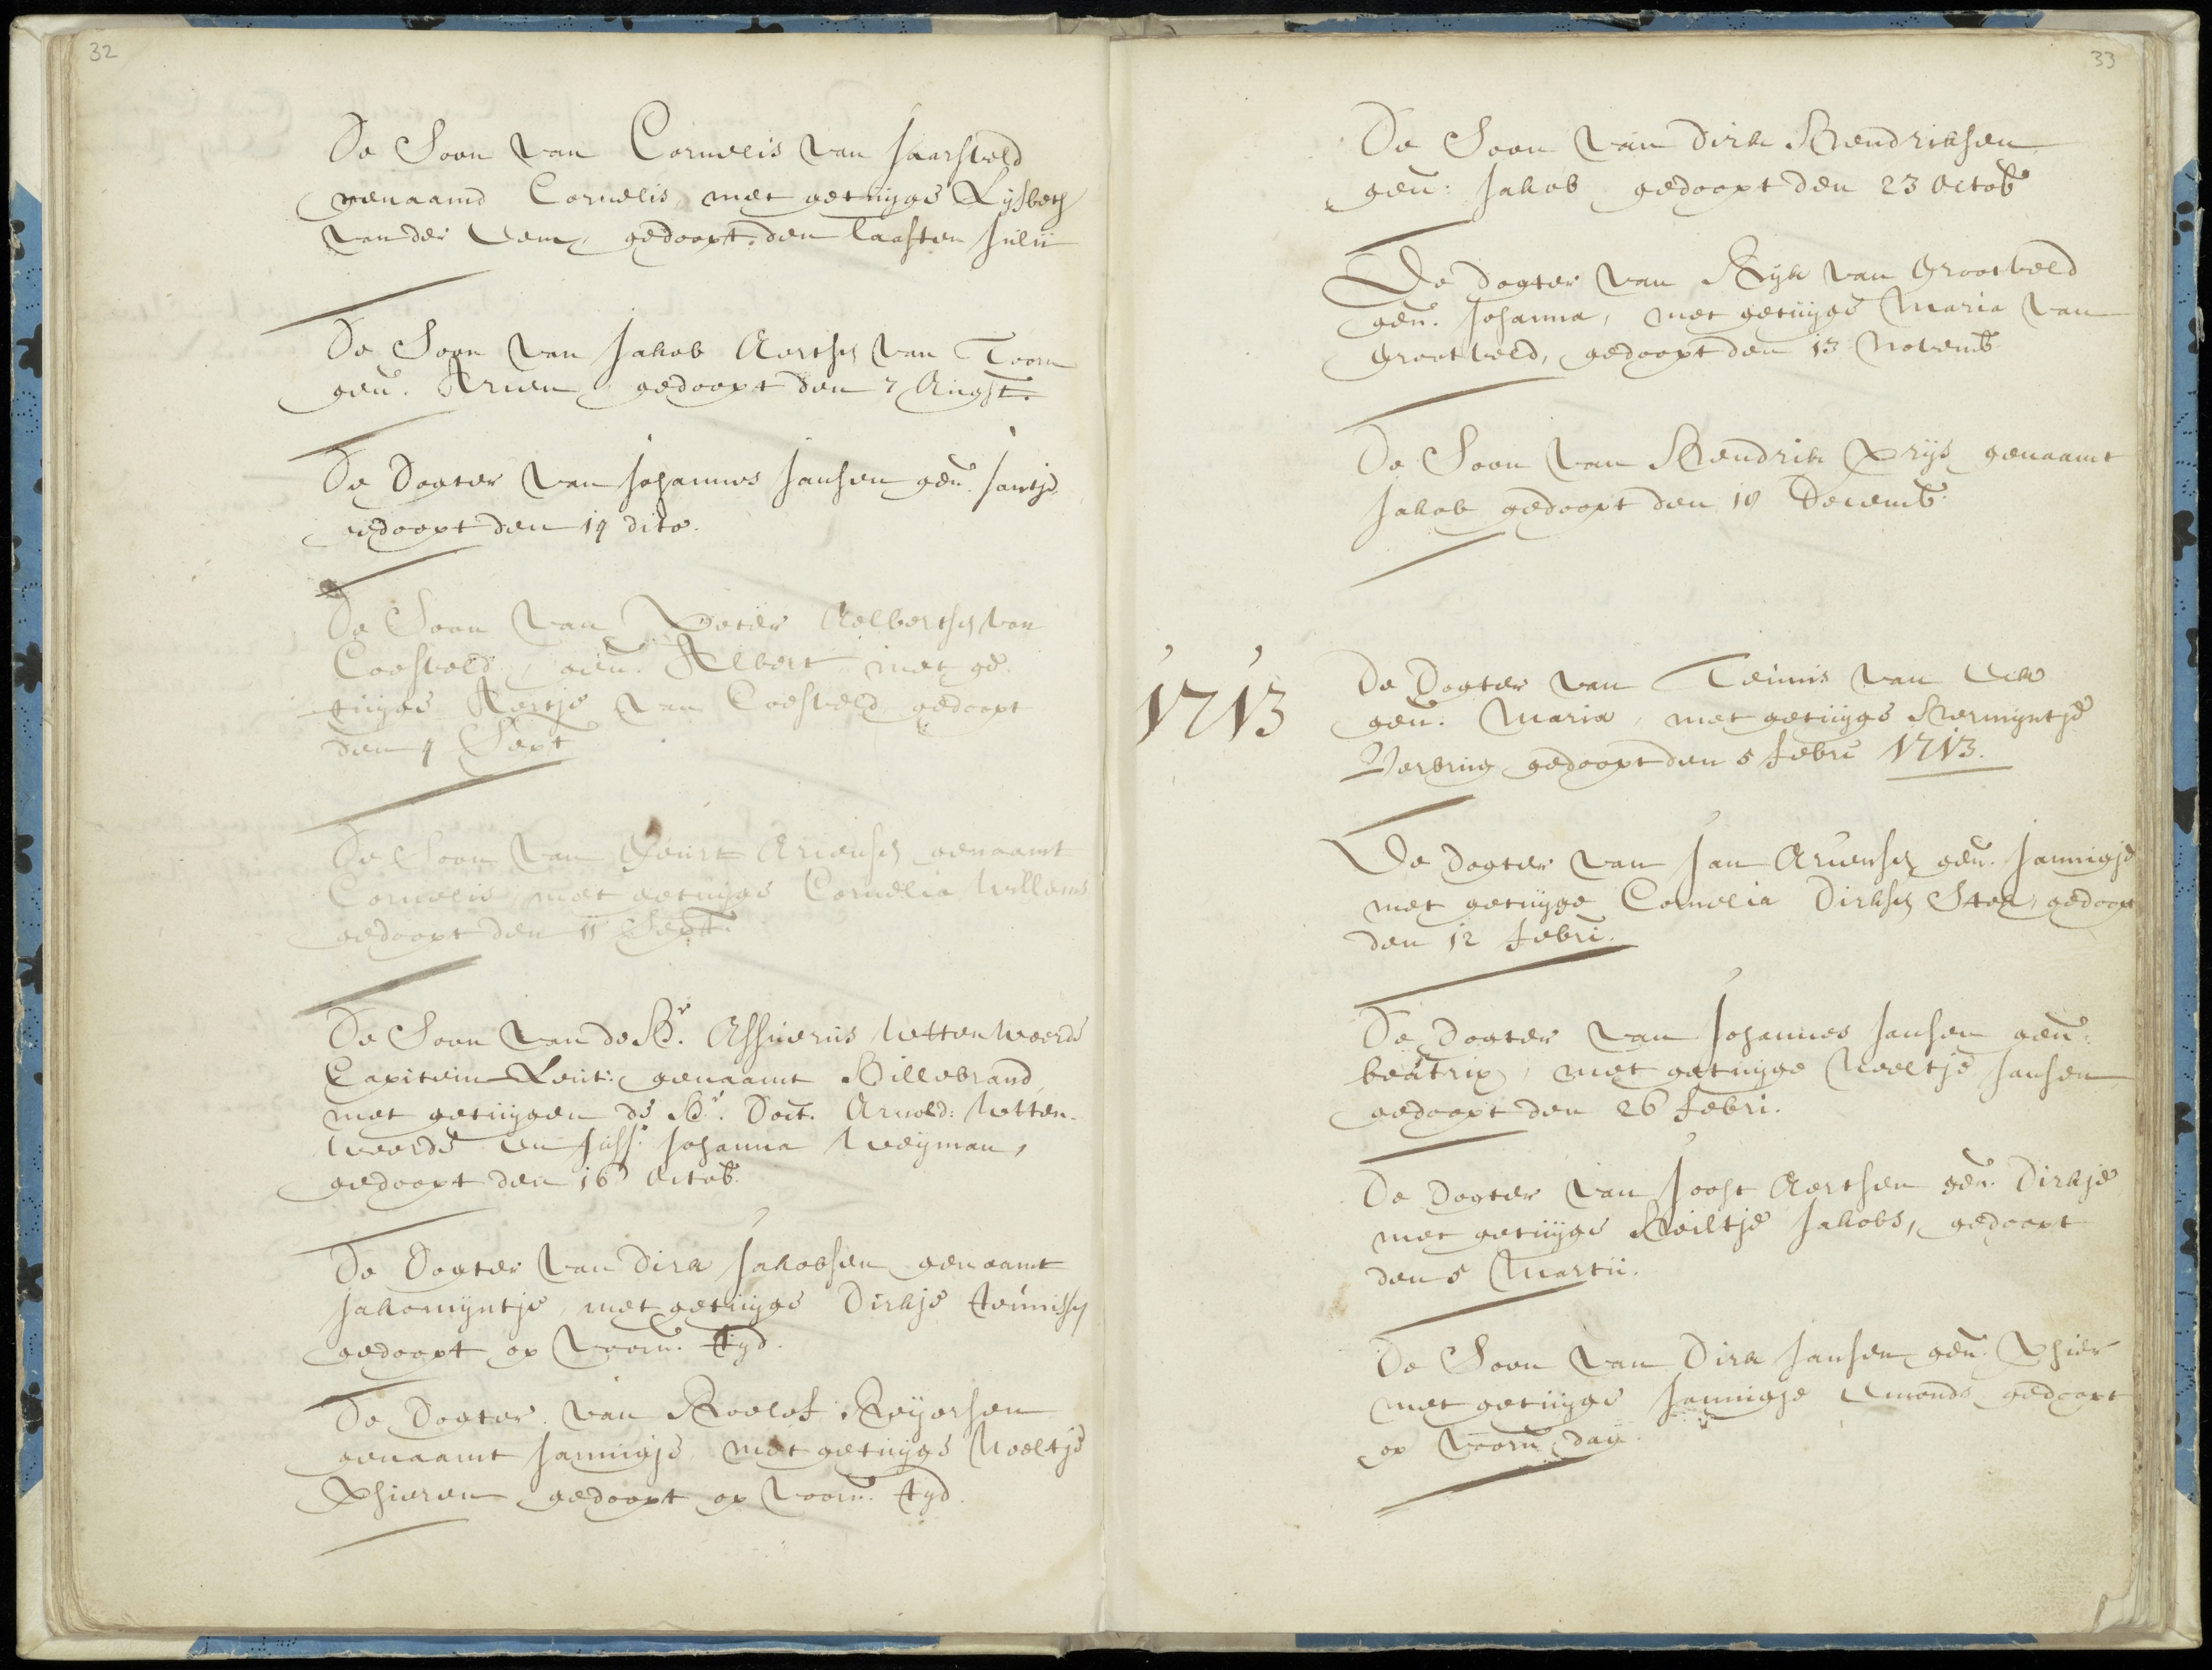 32
De Soon van Cornelis van Jaarsveld
genaamd Cornelis, met getuijge Lijsbeth
van der Eem, gedoopt den laasten Julii
De Soon van Jakob Aertsz van Toorn
gen. Arien gedoopt den 7 Augst.
De Dogter van Johannes Jansen gen. Jantje
gedoopt den 14 dito.
De Soon van Peter Aelbertsz van
Coesveld, gen. Albert met ge
tuijge Aertje van Coesveld gedoopt
den 4 Sept
De Soon van Geurt Ariensz genaamt
Cornelis, met getuijge Cornelia Willems
gedoopt den 11 Sept.
De Soon van de Hr. Assuerus Uttenweerde
Capitein Leut: genaamt Hillebrand
met getuijgen de Hr. Doct. Arnold: Utten-
weerde en Juff. Johanna Weijman,
gedoopt den 16 Octob.
De Dogter van Dirk Jakobsen genaamt
Jakomijntje, met getuijge Dirkje Teunissz
gedoopt op voorn. tyd.
De Dogter van Roelof Reijersen
genaamt Jannigje met getuijge Neeltje
Phieren gedoopt op voorn. tyd.
33
De Soon van Dirk Hendriksen
gen: Jakob gedoopt den 23 Octob
De dogter van Rijk van Grootveld
gen. Johanna, met getuijge Maria van
Grootveld, gedoopt den 13 Novemb
De Soon van Hendrik Prijs genaamt
Jakob gedoopt den 18 Decemb.
1713
De Dogter van Teunis van Eck
gen. Maria, met getuijge Hermijntje
Verbrug gedoopt den 5 febri 1713.
De dogter van Jan Ariensz gen. Jannigje
met getuijge Cornelia Dirksz Stek, gedoopt
den 12 febri.
De Dogter van Johannes Jansen gen.
beatrix, met getuijge Neeltje Jansen
gedoopt den 26 febri.
De Dogter van Joost Aertsen gen. Dirkje
met getuijge Heiltje Jakobs, gedoopt
den 5 Martii.
De Soon van Dirk Jansen gen. Phier
met getuijge Jannigje Emonds gedoopt
op voorn. dag.